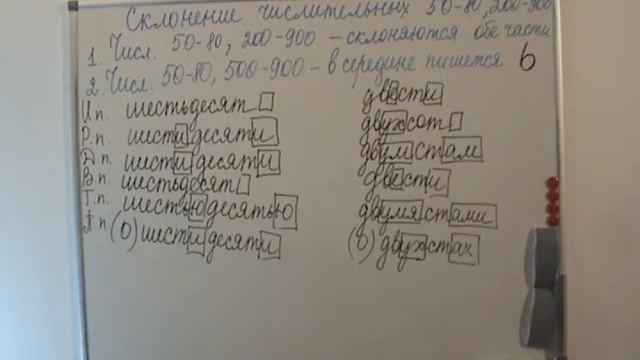 Склонение числительных 50-80, 200-900
1. Числ. 50-80, 200-900 – склоняются обе части
2. Числ. 50-80, 500-900 – в середине пишется ь
И.п. шестьдесят двести
Р.п. шестидесяти двухсот
Д.п. шестидесяти двумстам
В.п. шестьдесят двести
Т.п. шестьюдесятью двумястами
П.п. (о) шестидесяти (о) двухстах